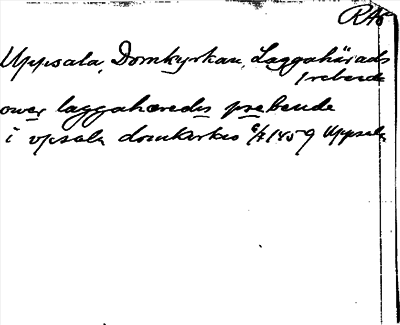 RAp
Uppsala, Domkyrkan, Laggahärads
prebende
ower laggahæredis prebende
i vpsala domkirkio 6/7 1459 Uppsala